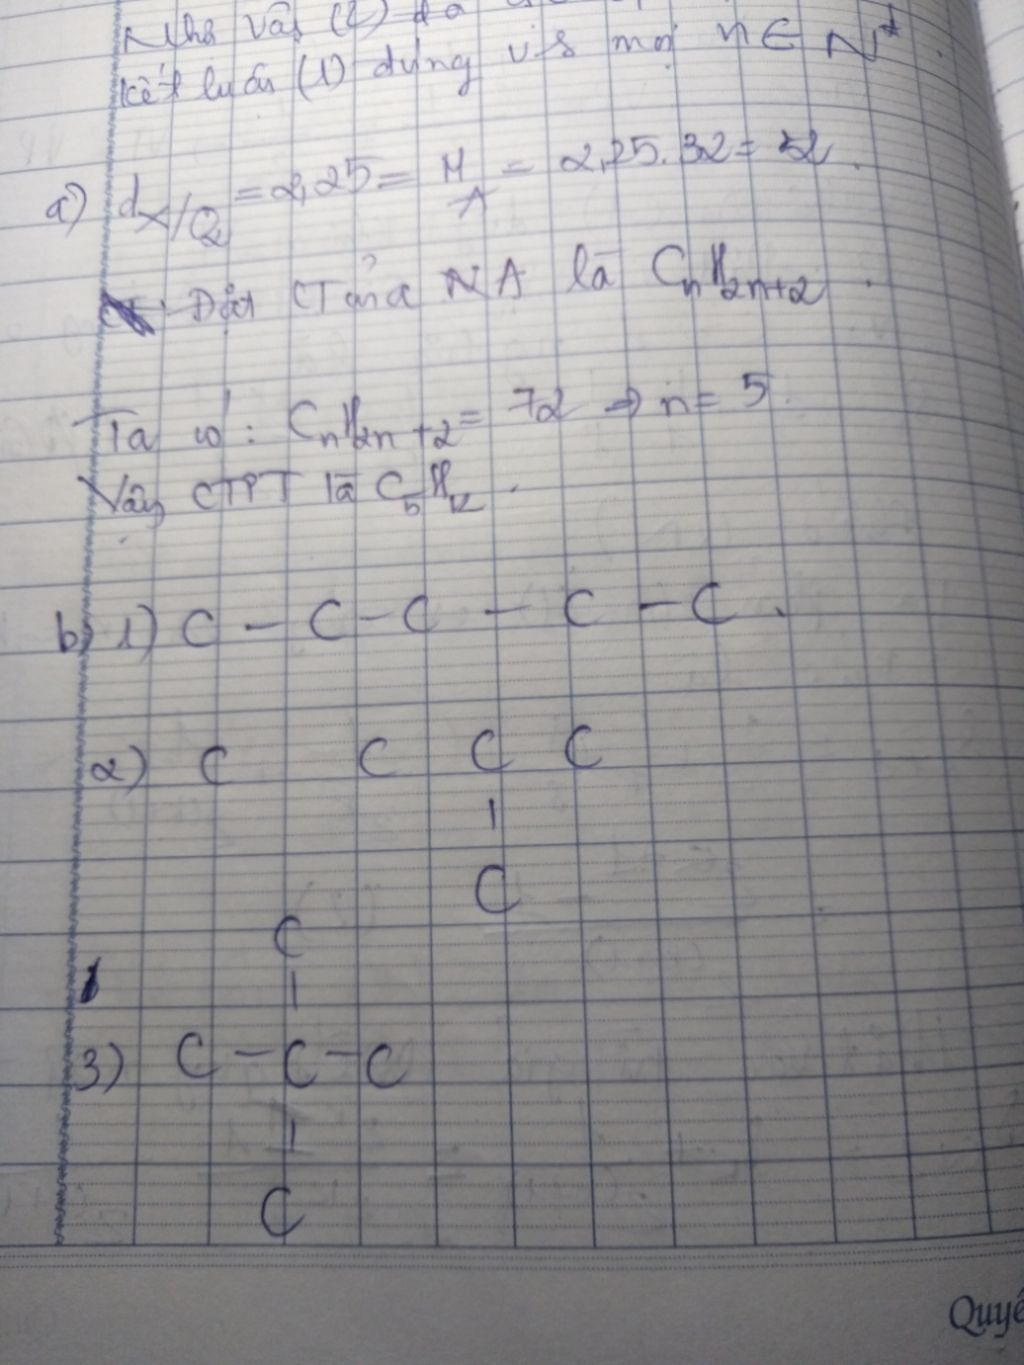 Như vậy (2) đã
kết luận (1) đúng với mọi n ∈ N*.
a) d X/O2 = 2,25 = M A = 2,25.32 = 72.
Đặt CT của A là CnH2n+2.
Ta có: CnH2n+2 = 72 => n = 5.
Vậy CTPT là C5H12.
b, 1) C - C - C - C - C.
2) C C C C
|
C
C
|
3) C - C - C
|
C
Quyể